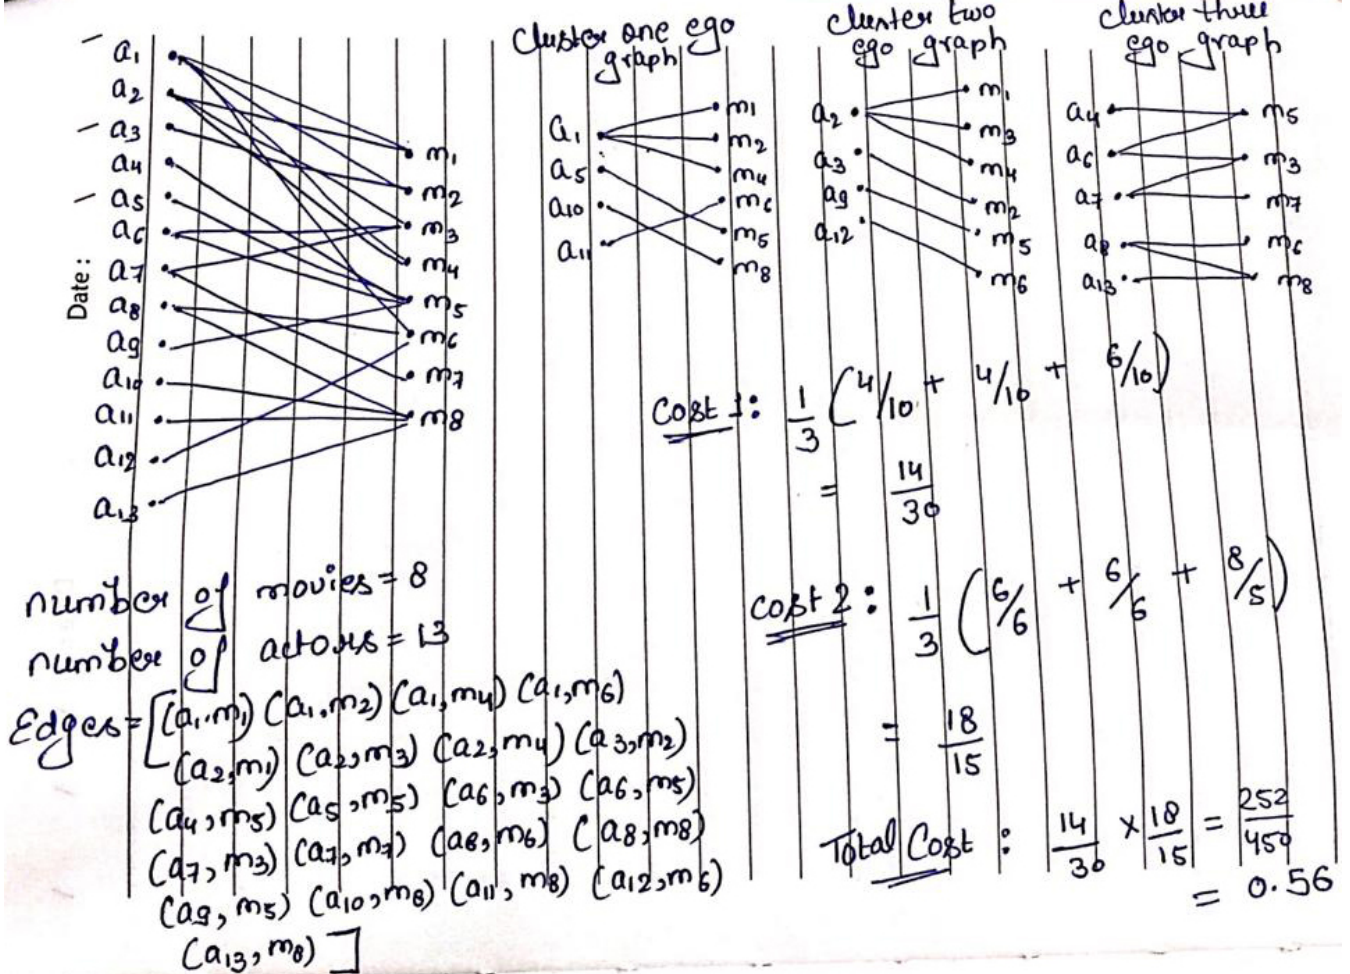 Date:
a1
a2
a3
a4
a5
a6
a7
a8
a9
a10
a11
a12
a13
m1
m2
m3
m4
m5
m6
m7
m8
Cluster one ego
graph
a1
a5
a10
a11
m1
m2
m4
m6
m5
m8
cluster two
ego graph
a2
a3
a9
a12
m1
m3
m4
m2
m5
m6
cluster three
ego graph
a4
a6
a7
a8
a13
m5
m3
m7
m6
m8
Cost 1: 1/3 (4/10 + 4/10 + 6/10)
= 14/30
cost 2: 1/3 (6/6 + 6/6 + 8/5)
= 18/15
Total Cost : 14/30 × 18/15 = 252/450
= 0.56
number of movies = 8
number of actors = 13
Edges = [(a1,m1) (a1,m2) (a1,m4) (a1,m6)
(a2,m1) (a2,m3) (a2,m4) (a3,m2)
(a4,m5) (a5,m5) (a6,m3) (a6,m5)
(a7,m3) (a7,m7) (a8,m6) (a8,m8)
(a9,m5) (a10,m8) (a11,m8) (a12,m6)
(a13,m8)]